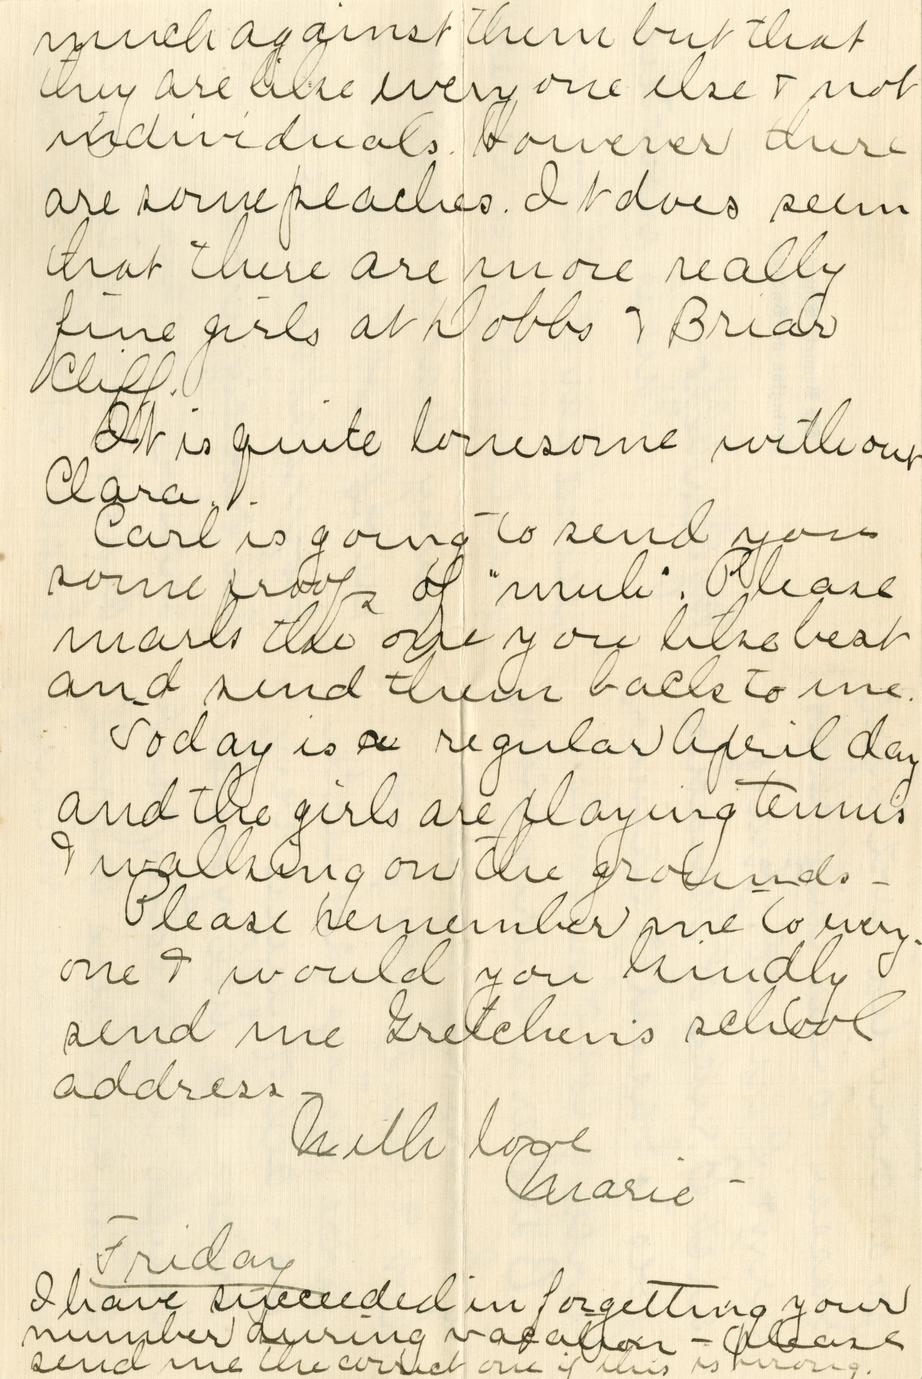 much against them but that
they are like every one else & not
individuals. However there
are some peaches. It does seem
that there are more really
fine girls at Dobbs & Briar
Cliff.
It is quite lonesome without
Clara.
Carl is going to send you
some proofs of "muli". Please
mark the one you like best
and send them back to me.
Today is a regular April day
and the girls are playing tennis
& walking on the grounds -
Please remember me to every-
one & would you kindly
send me Gretchen's school
address -
With love
Marie -
Friday
I have succeeded in forgetting your
number during vacation - please
send me the correct one if this is wrong.